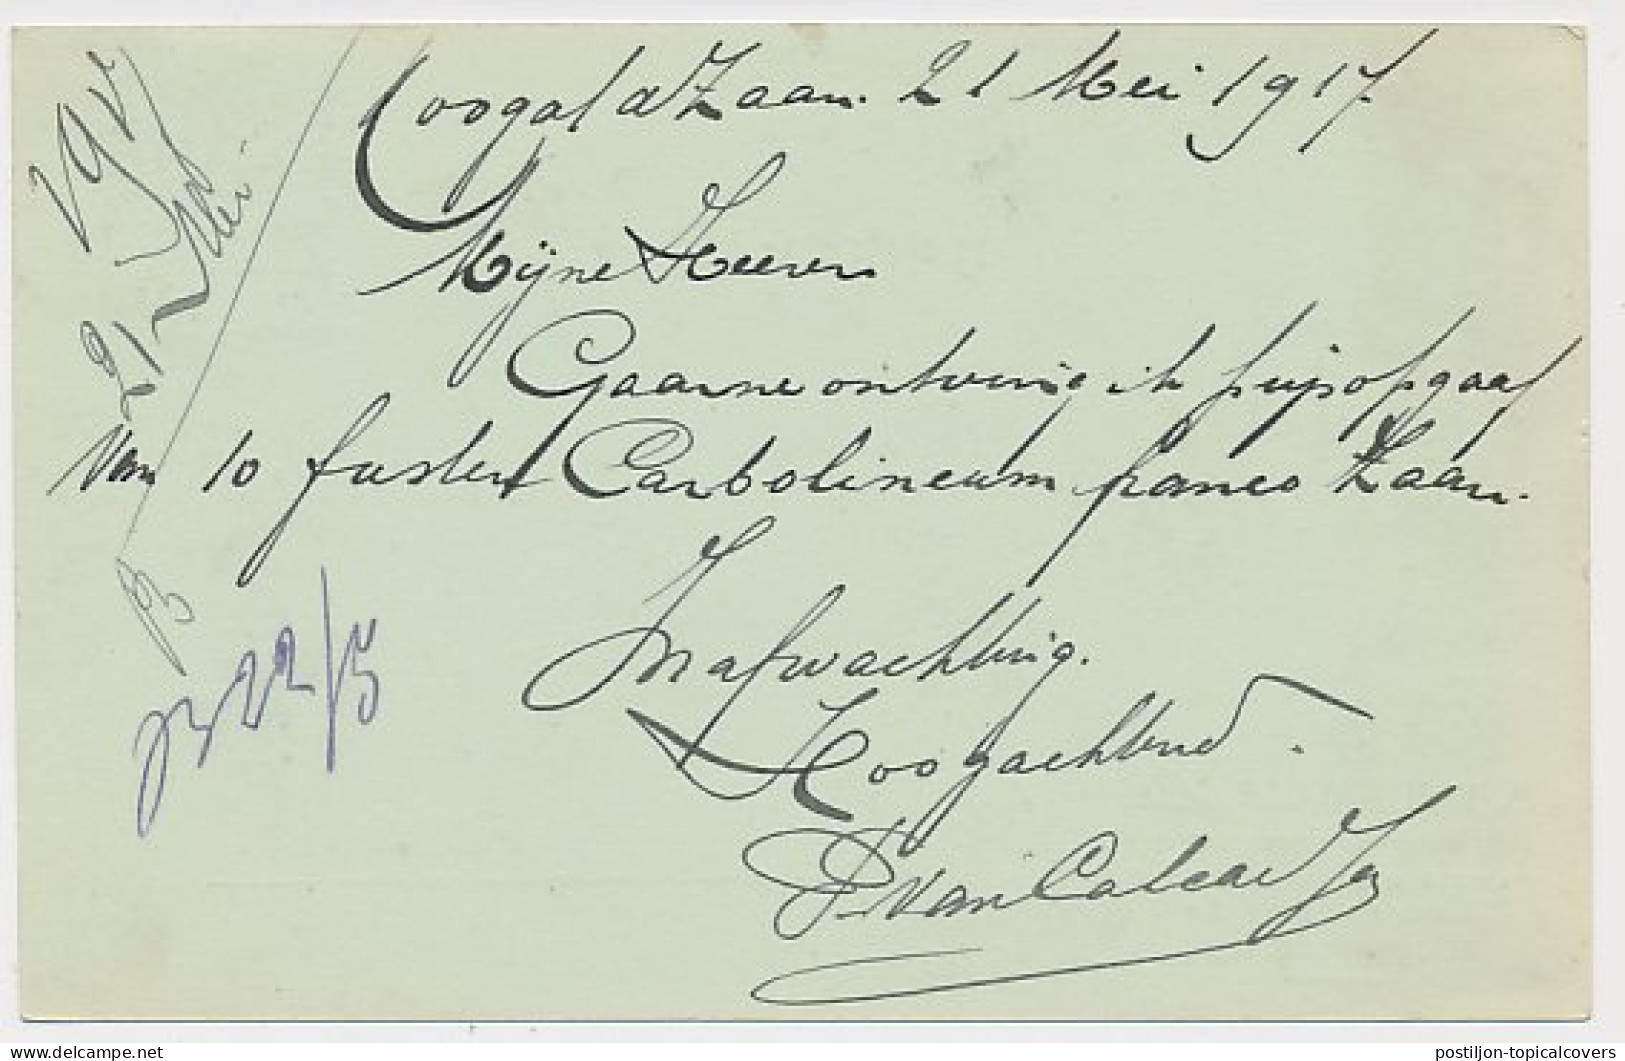 Koog a/d Zaan. 21 Mei 1917.
Mijne Heeren
Gaarne ontving ik prijsopgaaf
van 10 fusten Carbolineum franco Zaan.
Inafwachting.
Hoogachtend.
P. van Calcar Jzn
1917
21 Mei
B
22/5
Website: delcampe.net
postiljon-topicalcovers